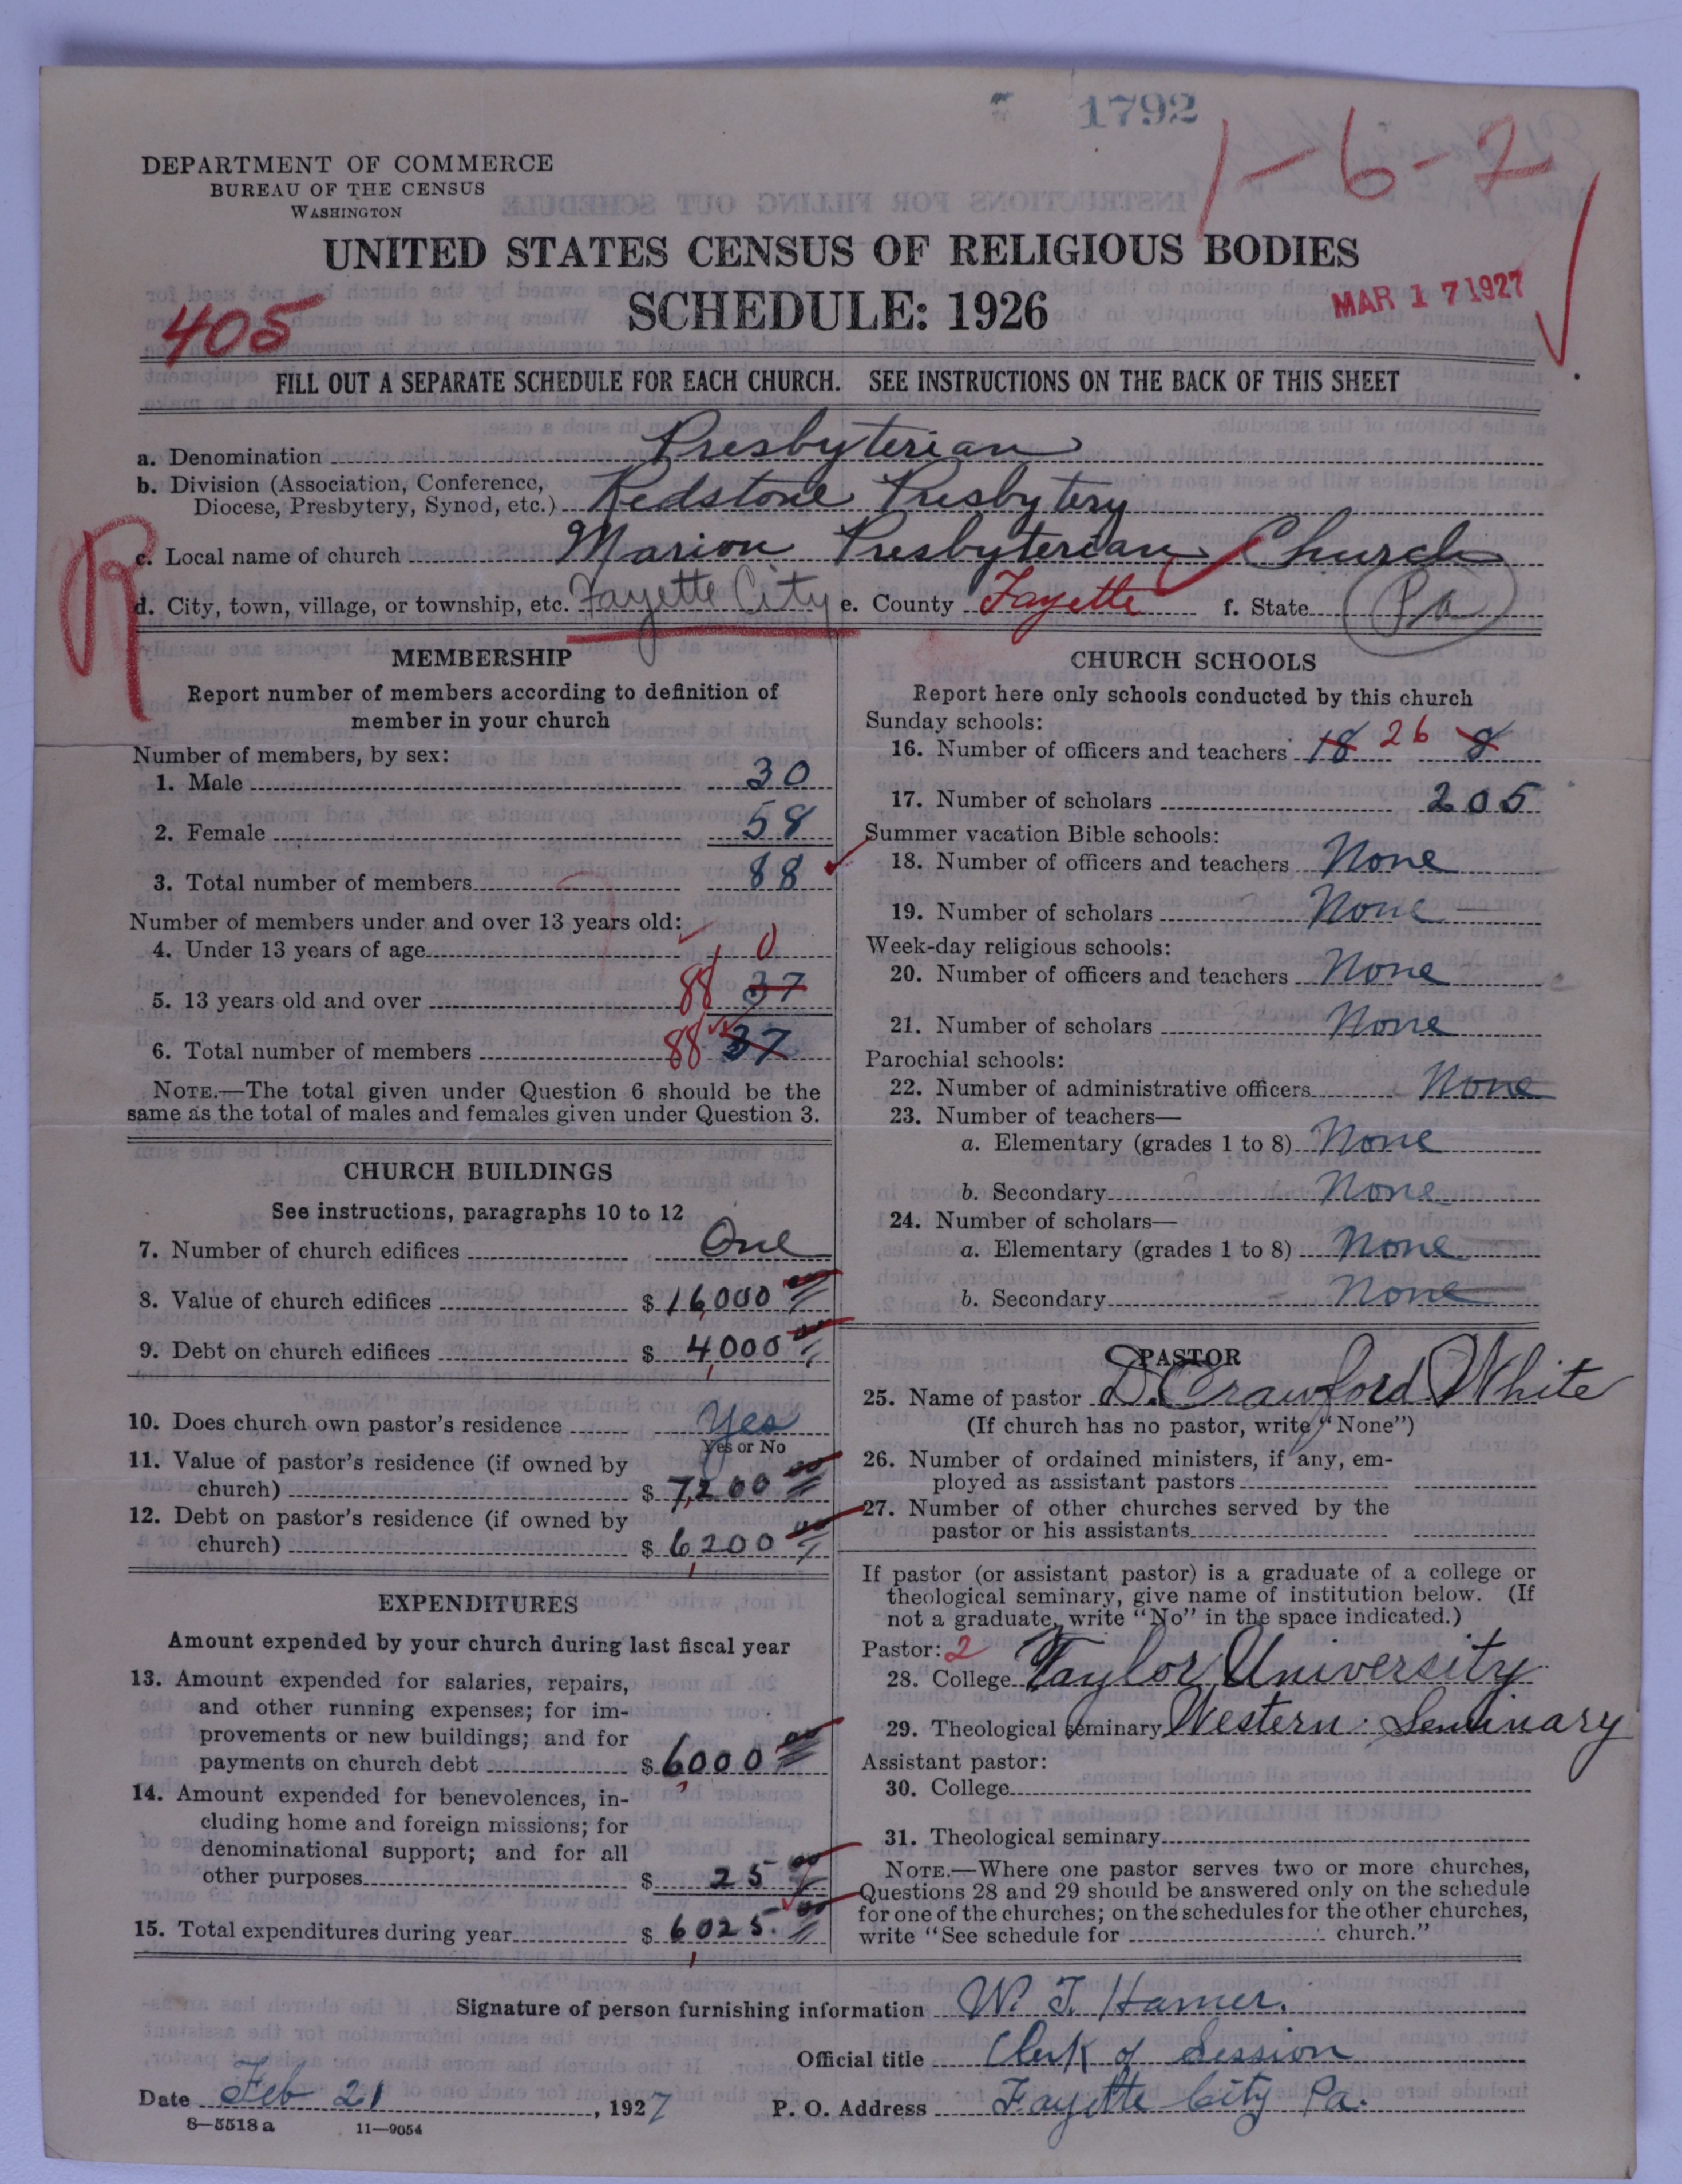 1792
1-6-2
DEPARTMENT OF COMMERCE
BUREAU OF THE CENSUS
WASHINGTON
UNITED STATES CENSUS OF RELIGIOUS BODIES
SCHEDULE: 1926
MAR 17 1927
405
FILL OUT A SEPARATE SCHEDULE FOR EACH CHURCH. SEE INSTRUCTIONS ON THE BACK OF THIS SHEET
a. Denomination Presbyterian
b. Division (Association, Conference,
Diocese, Presbytery, Synod, etc.) Redstone Presbytery
R
c. Local name of church Marion Presbyterian Church
d. City, town, village, or township, etc. Fayette City e. County Fayette f. State Pa
MEMBERSHIP
Report number of members according to definition of
member in your church
Number of members, by sex:
1. Male 30
2. Female 58
3. Total number of members 88
Number of members under and over 13 years old:
4. Under 13 years of age 0
5. 13 years old and over 88 37
6. Total number of members 88 37
NOTE.—The total given under Question 6 should be the
same as the total of males and females given under Question 3.
CHURCH BUILDINGS
See instructions, paragraphs 10 to 12
7. Number of church edifices One
8. Value of church edifices $ 16,000 00
9. Debt on church edifices $ 4,000 00
10. Does church own pastor's residence Yes
Yes or No
11. Value of pastor's residence (if owned by
church) $ 7,200 00
12. Debt on pastor's residence (if owned by
church) $ 6,200 00
EXPENDITURES
Amount expended by your church during last fiscal year
13. Amount expended for salaries, repairs,
and other running expenses; for im-
provements or new buildings; and for
payments on church debt $ 6,000 00
14. Amount expended for benevolences, in-
cluding home and foreign missions; for
denominational support; and for all
other purposes $ 25 00
15. Total expenditures during year $ 6,025.00
CHURCH SCHOOLS
Report here only schools conducted by this church
Sunday schools:
16. Number of officers and teachers 18 26 8
17. Number of scholars 205
Summer vacation Bible schools:
18. Number of officers and teachers None
19. Number of scholars None
Week-day religious schools:
20. Number of officers and teachers None
21. Number of scholars None
Parochial schools:
22. Number of administrative officers None
23. Number of teachers—
a. Elementary (grades 1 to 8) None
b. Secondary None
24. Number of scholars—
a. Elementary (grades 1 to 8) None
b. Secondary None
PASTOR
25. Name of pastor D. Crawford White
(If church has no pastor, write "None")
26. Number of ordained ministers, if any, em-
ployed as assistant pastors
27. Number of other churches served by the
pastor or his assistants
If pastor (or assistant pastor) is a graduate of a college or
theological seminary, give name of institution below. (If
not a graduate, write "No" in the space indicated.)
Pastor: 2
28. College Taylor University
29. Theological seminary Western Seminary
Assistant pastor:
30. College
31. Theological seminary
NOTE.—Where one pastor serves two or more churches,
Questions 28 and 29 should be answered only on the schedule
for one of the churches; on the schedules for the other churches,
write "See schedule for church."
Signature of person furnishing information W. J. Hamer.
Official title Clerk of Session
Date Feb 21, 1927 P. O. Address Fayette City Pa.
8—5518 a 11—9054